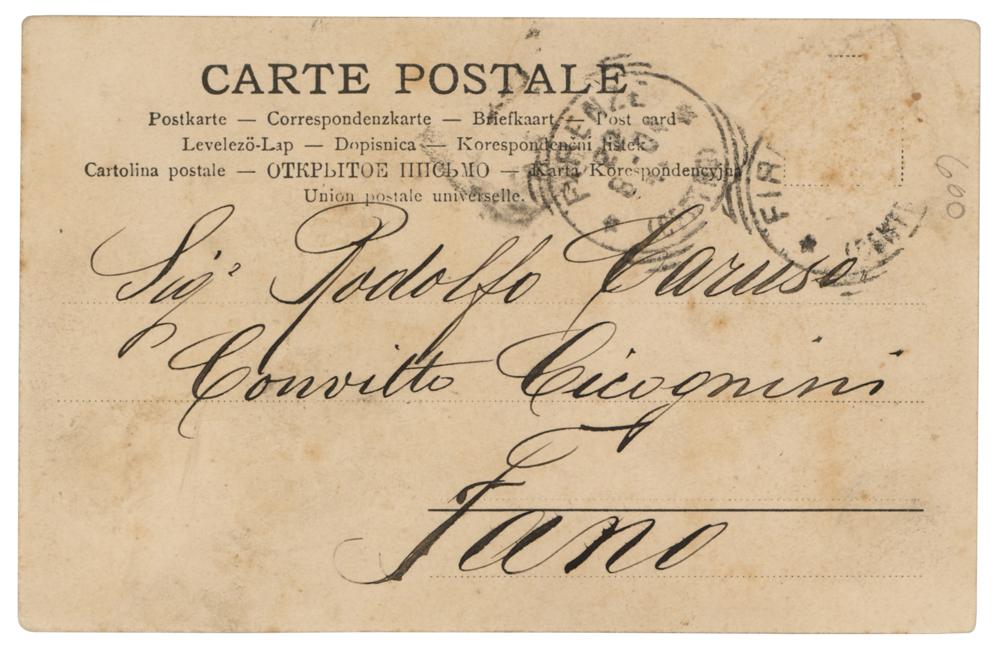 CARTE POSTALE
Postkarte — Correspondenzkarte — Briefkaart — Post card
Levelezö-Lap — Dopisnica — Korespondenčni listek
Cartolina postale — ОТКРЫТОЕ ПИСЬМО — Karta Korespondencyjna
Union postale universelle.
FIRENZE
Sigr Rodolfo Caruso
Convitto Cicognini
Fano
600